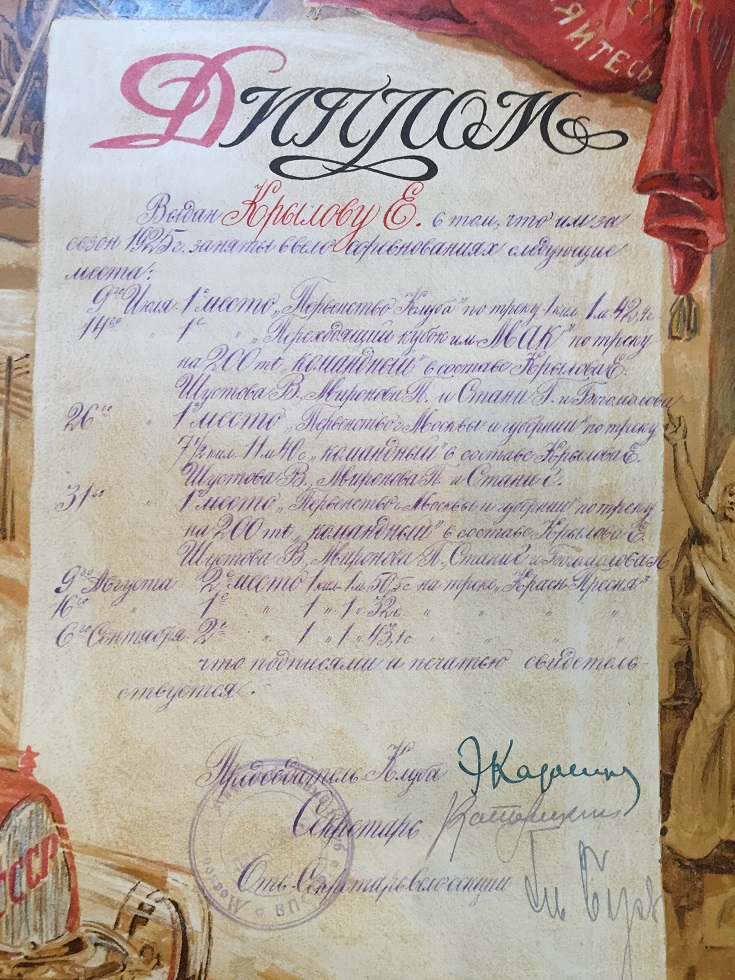 ЯЙТЕСЬ
Диплом
Выдан Крылову Е. в том, что им за
сезон 1925 г. заняты в вело соревнованиях следующие
места:
9го Июля 1е место „Первенство Клуба" по треку 1 кил. 1 м 42,4 с.
14го 1е " „Переходящий кубок им. МАК" по треку
на 200 mt „командный" в составе Крылова Е.
Шустова В., Миронова П. и Стани Г. и Богомолова
26го 1е место „Первенство Москвы и губернии" по треку
7½ кил. 11 м 40 с. „командный" в составе Крылова Е.
Шустова В., Миронова П. и Стани
31го " 1е место „Первенство Москвы и губернии" по треку
на 200 mt „командный" в составе Крылова Е.
Шустова В., Миронова П., Стани и Богомолова
9го Августа 2е место 1 кил. 1 м. 50,5 с. на треке „Красн. Пресня"
16го " 1е " 1 " 1 " 32 с. " " "
6го Сентября 2е " 1 " 1 " 43,1 с. " " "
что подписями и печатью свидетель-
ствуется.-
Председатель Клуба
Секретарь
Отв. Секретарь велосекции
СССР